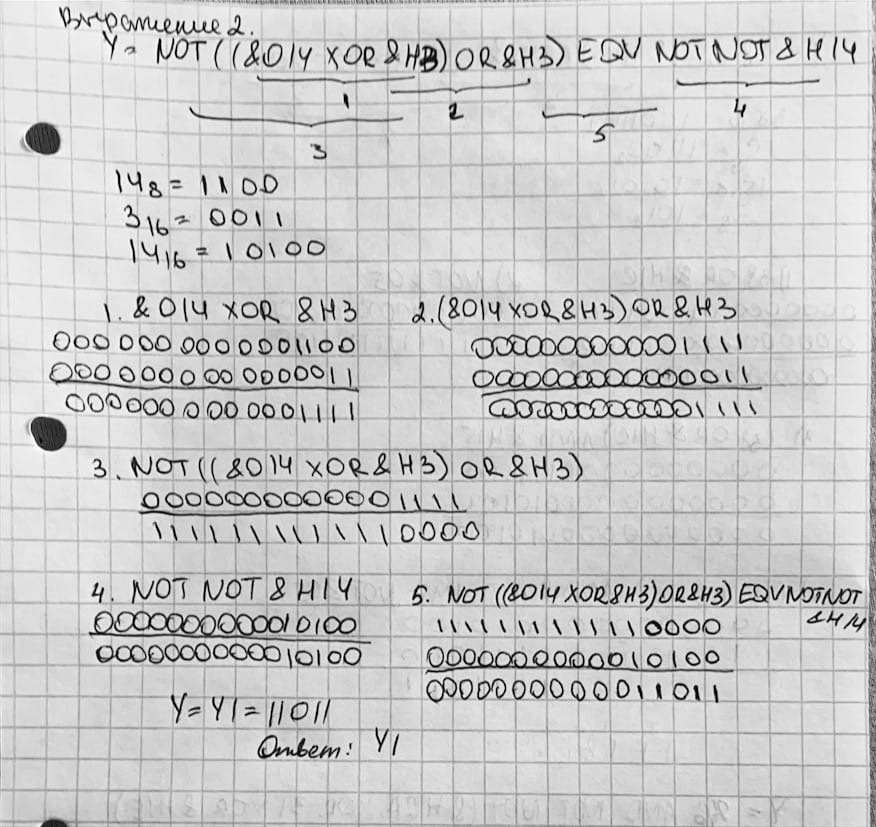 Выражение 2.
Y = NOT((&O14 XOR &HB) OR &H3) EQV NOT NOT &H14
1 2 3 4 5
14₈ = 1100
3₁₆ = 0011
14₁₆ = 10100
1. &O14 XOR &H3 2. (&O14 XOR &H3) OR &H3
0000000000001100 0000000000001111
0000000000000011 0000000000000011
0000000000001111 0000000000001111
3. NOT((&O14 XOR &H3) OR &H3)
0000000000001111
1111111111110000
4. NOT NOT &H14 5. NOT((&O14 XOR &H3) OR &H3) EQV NOT NOT
&H14
0000000000010100 1111111111110000
0000000000010100 0000000000010100
0000000000011011
Y = Y1 = 11011
Ответ: Y1